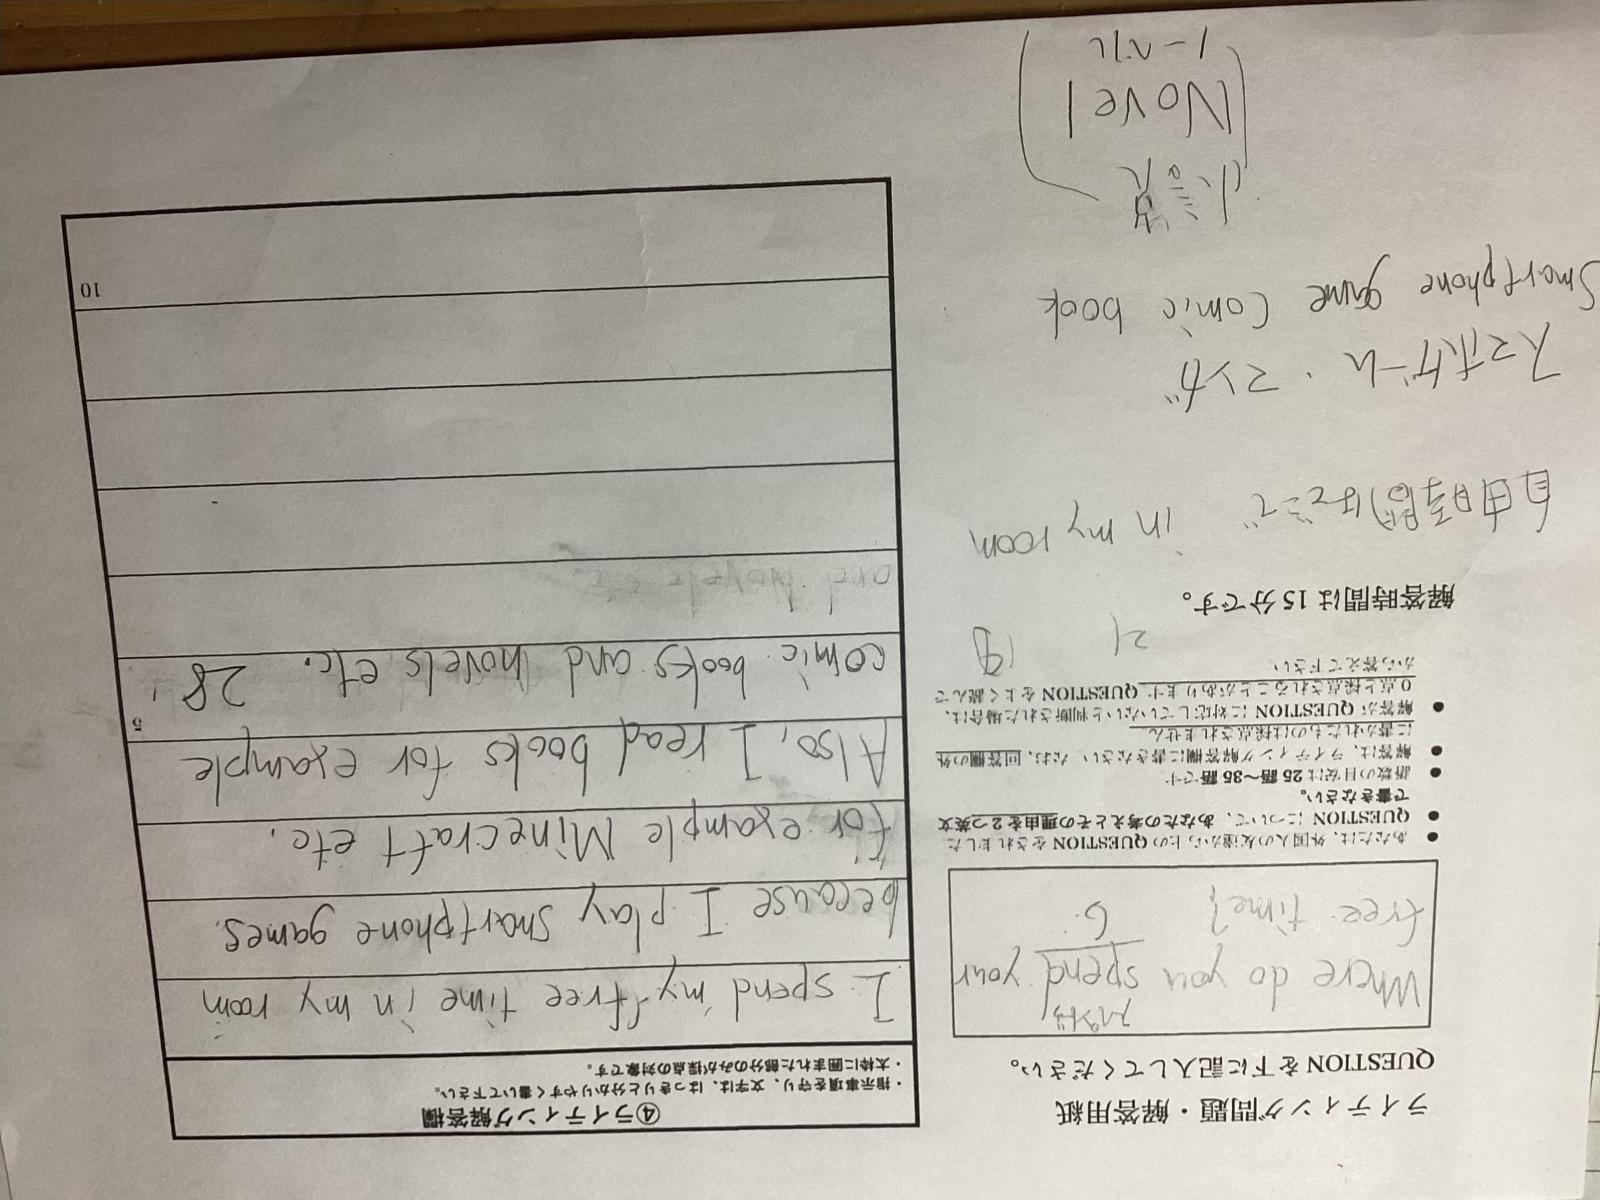 ライティング問題・解答用紙
QUESTION を下に記入してください。
スペンド
Where do you spend your
free time?
6.
● あなたは、外国人の友達から上の QUESTION をされました
● QUESTION について、あなたの考えとその理由を2つ英文
で書きなさい。
● 語数の目安は 25 語~35 語です
● 解答は、ライティング解答欄に書きなさい なお、回答欄の外
に書かれたものは採点されません
● 解答が QUESTION に対応していないと判断された場合は、
0点と採点されることがあります QUESTION をよく読んで
から答えて下さい
21
解答時間は 15 分です。
自由時間はどこで in my room
スマホゲーム・マンガ
Smartphone game comic book
小説
Novel
ノーベル
④ライティング解答欄
・指示事項を守り、文字は、はっきりと分かりやすく書いて下さい。
・太枠に囲まれた部分のみが採点の対象です。
I spend my free time in my room
because I play smartphone games.
for example Minecraft etc.
Also, I read books for example
5
comic books and novels etc. 28
and Novels etc.
10